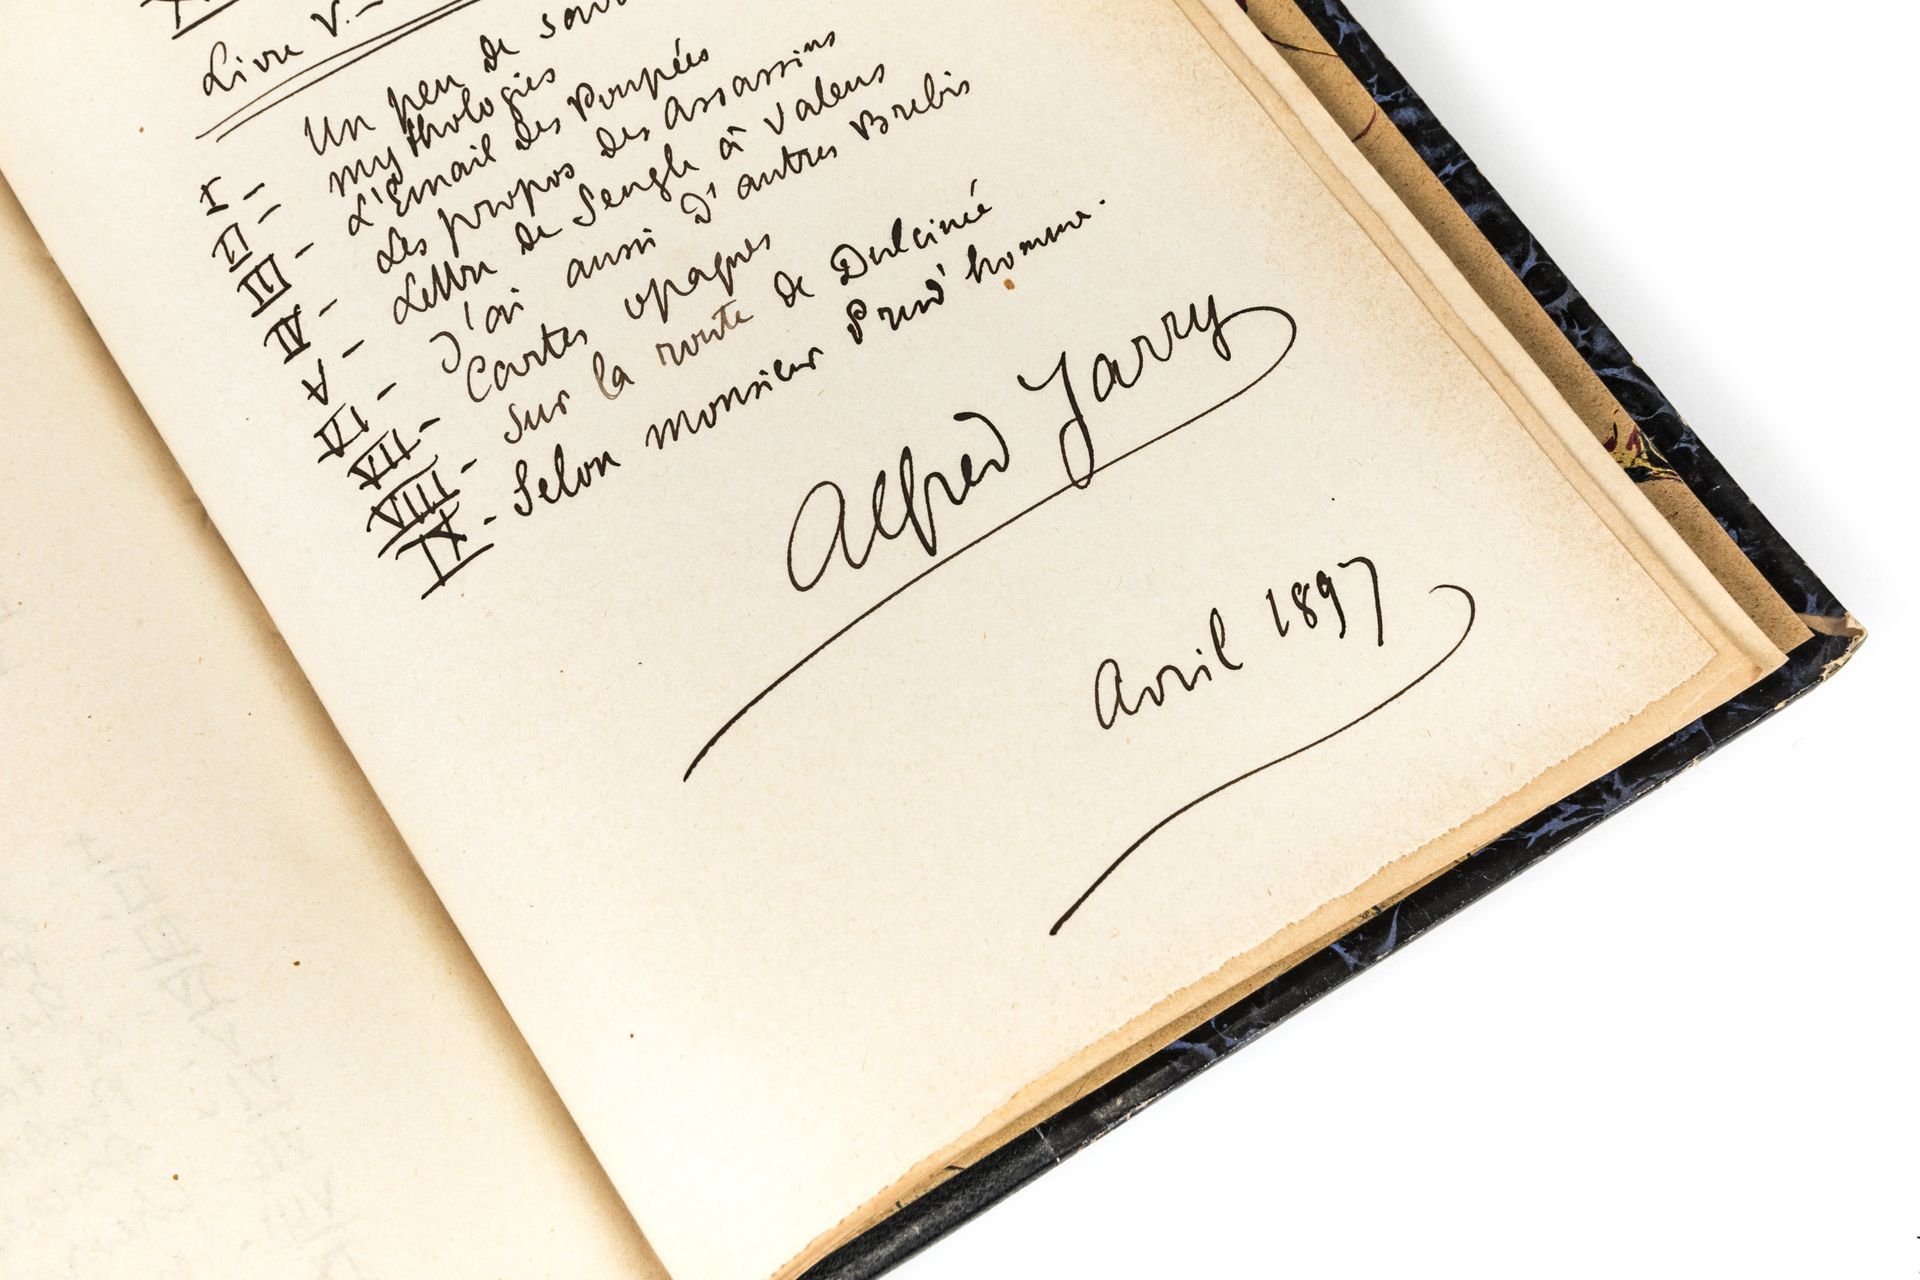 Livre V. —
I — Un peu de
II — mythologies
III — L'Email des Poupées
IV — Les propos des Assassins
V — Lettre de Sengle à Valens
VI — J'ai aussi d'autres Brebis
VII — Cartes opaques
VIII — Sur la route de Dulciné
IX — Selon monsieur Prud'homme.
Alfred Jarry
Avril 1897